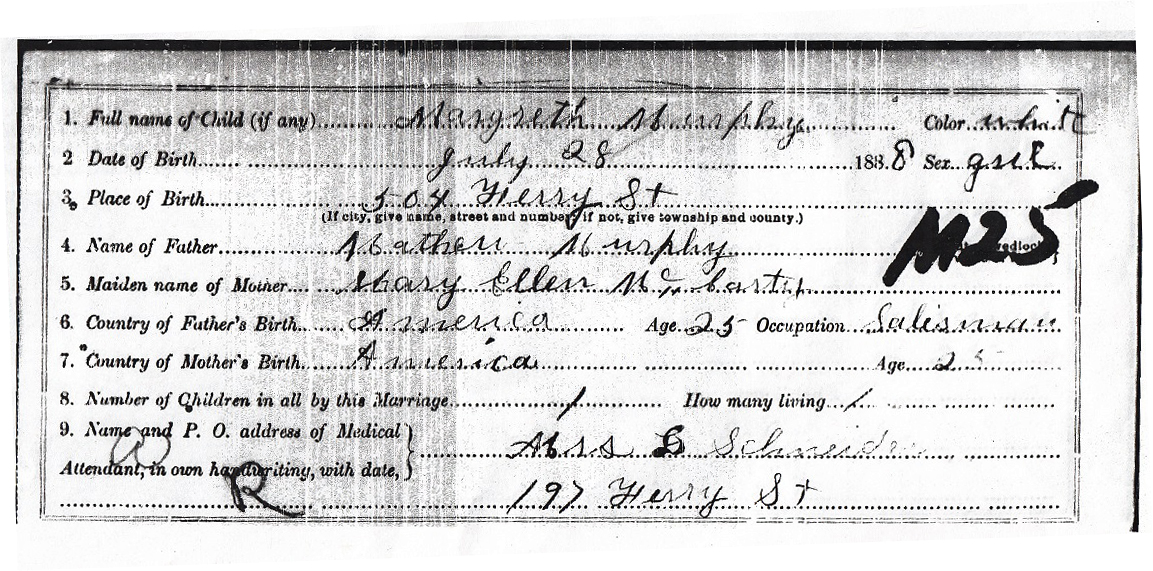 1. Full name of Child (if any) Margreth Murphy Color white
2 Date of Birth July 28 1888 Sex girl
3. Place of Birth 504 Ferry St
(If city, give name, street and number; if not, give township and county.)
4. Name of Father Mathew Murphy M25
5. Maiden name of Mother Mary Ellen Mc Carty
6. Country of Father's Birth America Age 25 Occupation Salesman
7. Country of Mother's Birth America Age 25
8. Number of Children in all by this Marriage 1 How many living 1
9. Name and P. O. address of Medical Mrs Schneider
Attendant, in own handwriting, with date,
R 197 Ferry St